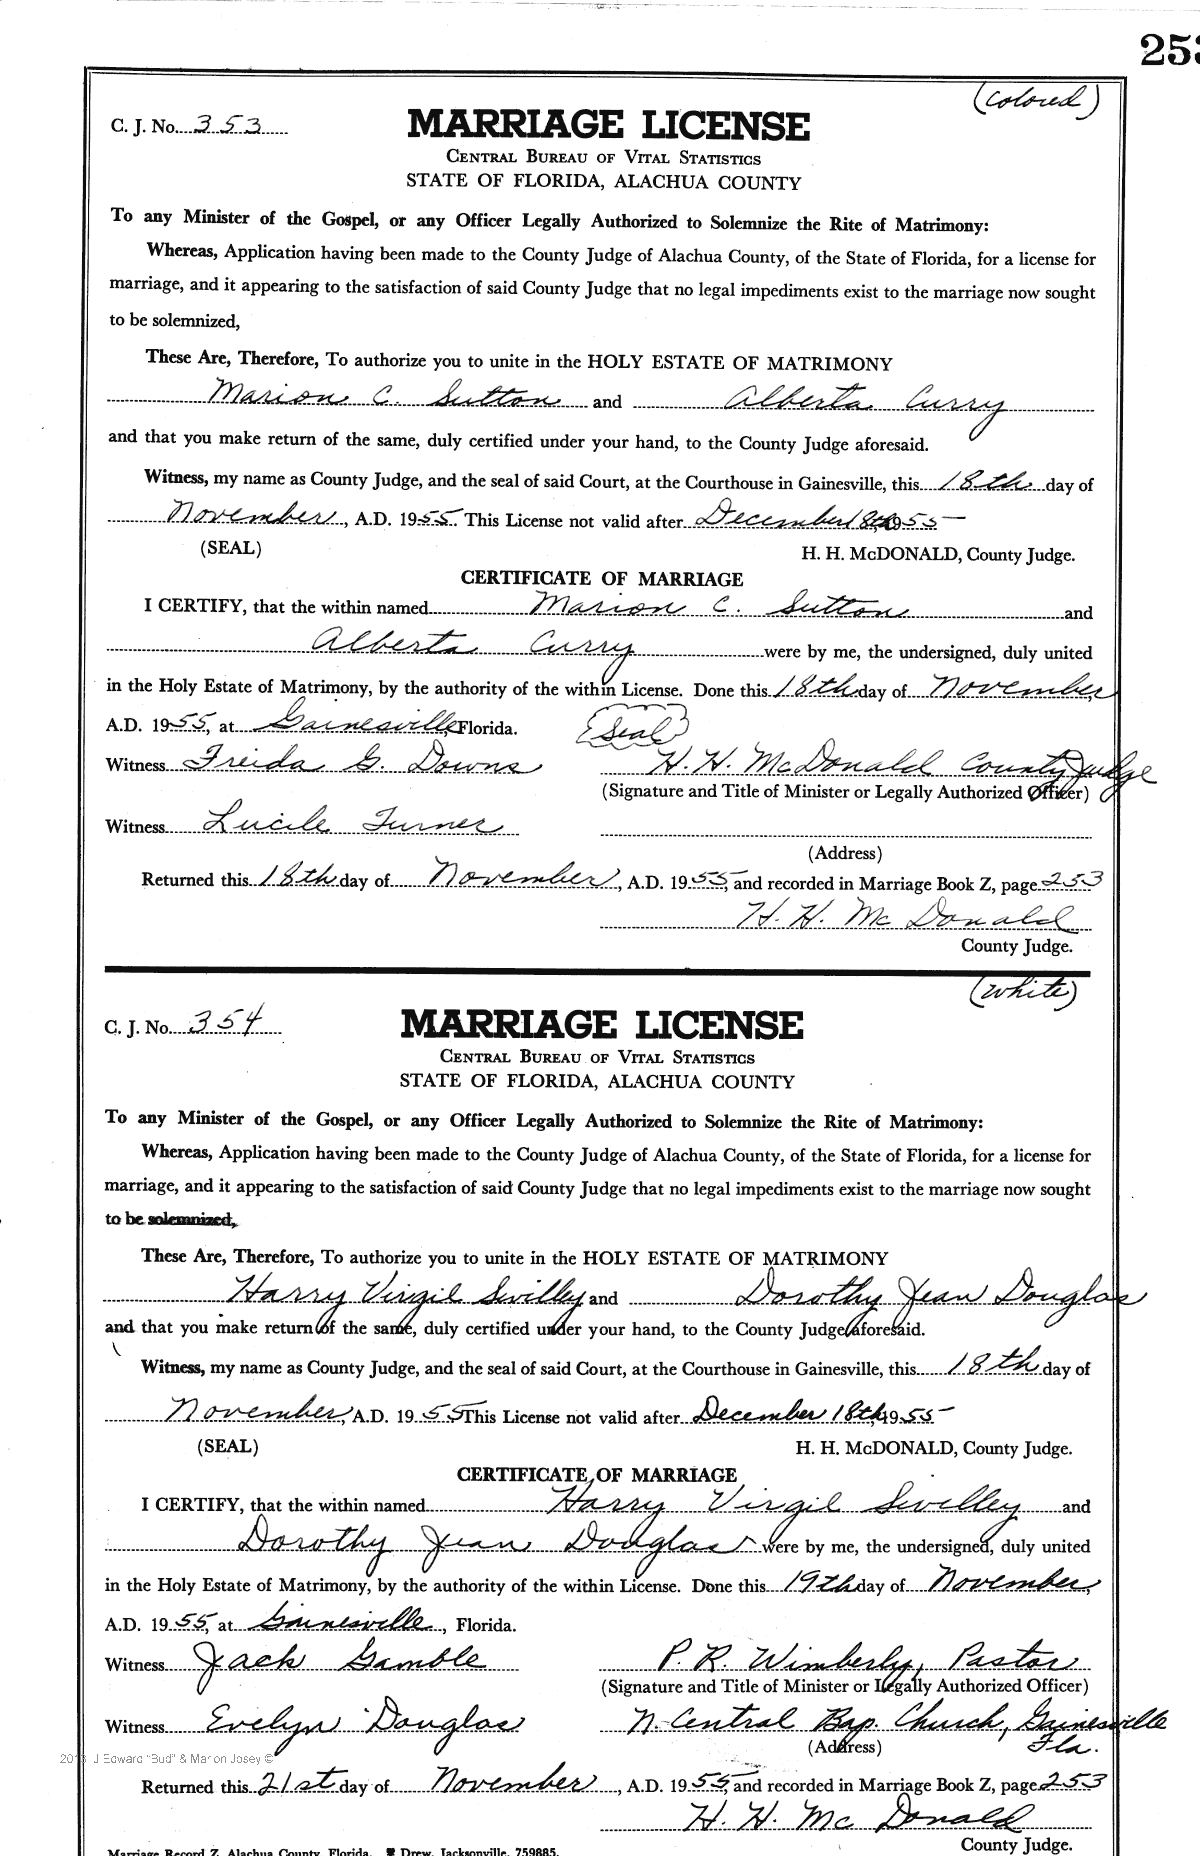 253
(Colored)
C. J. No. 353
MARRIAGE LICENSE
CENTRAL BUREAU OF VITAL STATISTICS
STATE OF FLORIDA, ALACHUA COUNTY
To any Minister of the Gospel, or any Officer Legally Authorized to Solemnize the Rite of Matrimony:
Whereas, Application having been made to the County Judge of Alachua County, of the State of Florida, for a license for
marriage, and it appearing to the satisfaction of said County Judge that no legal impediments exist to the marriage now sought
to be solemnized,
These Are, Therefore, To authorize you to unite in the HOLY ESTATE OF MATRIMONY
Marion C. Sutton and Alberta Curry
and that you make return of the same, duly certified under your hand, to the County Judge aforesaid.
Witness, my name as County Judge, and the seal of said Court, at the Courthouse in Gainesville, this 18th day of
November, A.D. 1955. This License not valid after December 18th, 1955
(SEAL) H. H. McDONALD, County Judge.
CERTIFICATE OF MARRIAGE
I CERTIFY, that the within named Marion C. Sutton and
Alberta Curry were by me, the undersigned, duly united
in the Holy Estate of Matrimony, by the authority of the within License. Done this 18th day of November,
A.D. 1955, at Gainesville, Florida. (Seal)
Witness Freida G. Downs H. H. McDonald County Judge
(Signature and Title of Minister or Legally Authorized Officer)
Witness Lucile Turner
(Address)
Returned this 18th day of November, A.D. 1955, and recorded in Marriage Book Z, page 253
H. H. McDonald
County Judge.
(White)
C. J. No. 354
MARRIAGE LICENSE
CENTRAL BUREAU OF VITAL STATISTICS
STATE OF FLORIDA, ALACHUA COUNTY
To any Minister of the Gospel, or any Officer Legally Authorized to Solemnize the Rite of Matrimony:
Whereas, Application having been made to the County Judge of Alachua County, of the State of Florida, for a license for
marriage, and it appearing to the satisfaction of said County Judge that no legal impediments exist to the marriage now sought
to be solemnized,
These Are, Therefore, To authorize you to unite in the HOLY ESTATE OF MATRIMONY
Harry Virgil Sivilley and Dorothy Jean Douglas
and that you make return of the same, duly certified under your hand, to the County Judge aforesaid.
Witness, my name as County Judge, and the seal of said Court, at the Courthouse in Gainesville, this 18th day of
November, A.D. 1955 This License not valid after December 18th, 1955
(SEAL) H. H. McDONALD, County Judge.
CERTIFICATE OF MARRIAGE
I CERTIFY, that the within named Harry Virgil Sivilley and
Dorothy Jean Douglas were by me, the undersigned, duly united
in the Holy Estate of Matrimony, by the authority of the within License. Done this 19th day of November,
A.D. 1955, at Gainesville, Florida.
Witness Jack Gamble P. R. Wimberly, Pastor
(Signature and Title of Minister or Legally Authorized Officer)
Witness Evelyn Douglas N. Central Bap. Church, Gainesville
(Address) Fla.
J Edward "Bud" & Marion Josey ©
Returned this 21st day of November, A.D. 1955, and recorded in Marriage Book Z, page 253
H. H. McDonald
County Judge.
Marriage Record Z, Alachua County, Florida. Drew, Jacksonville, 759885.